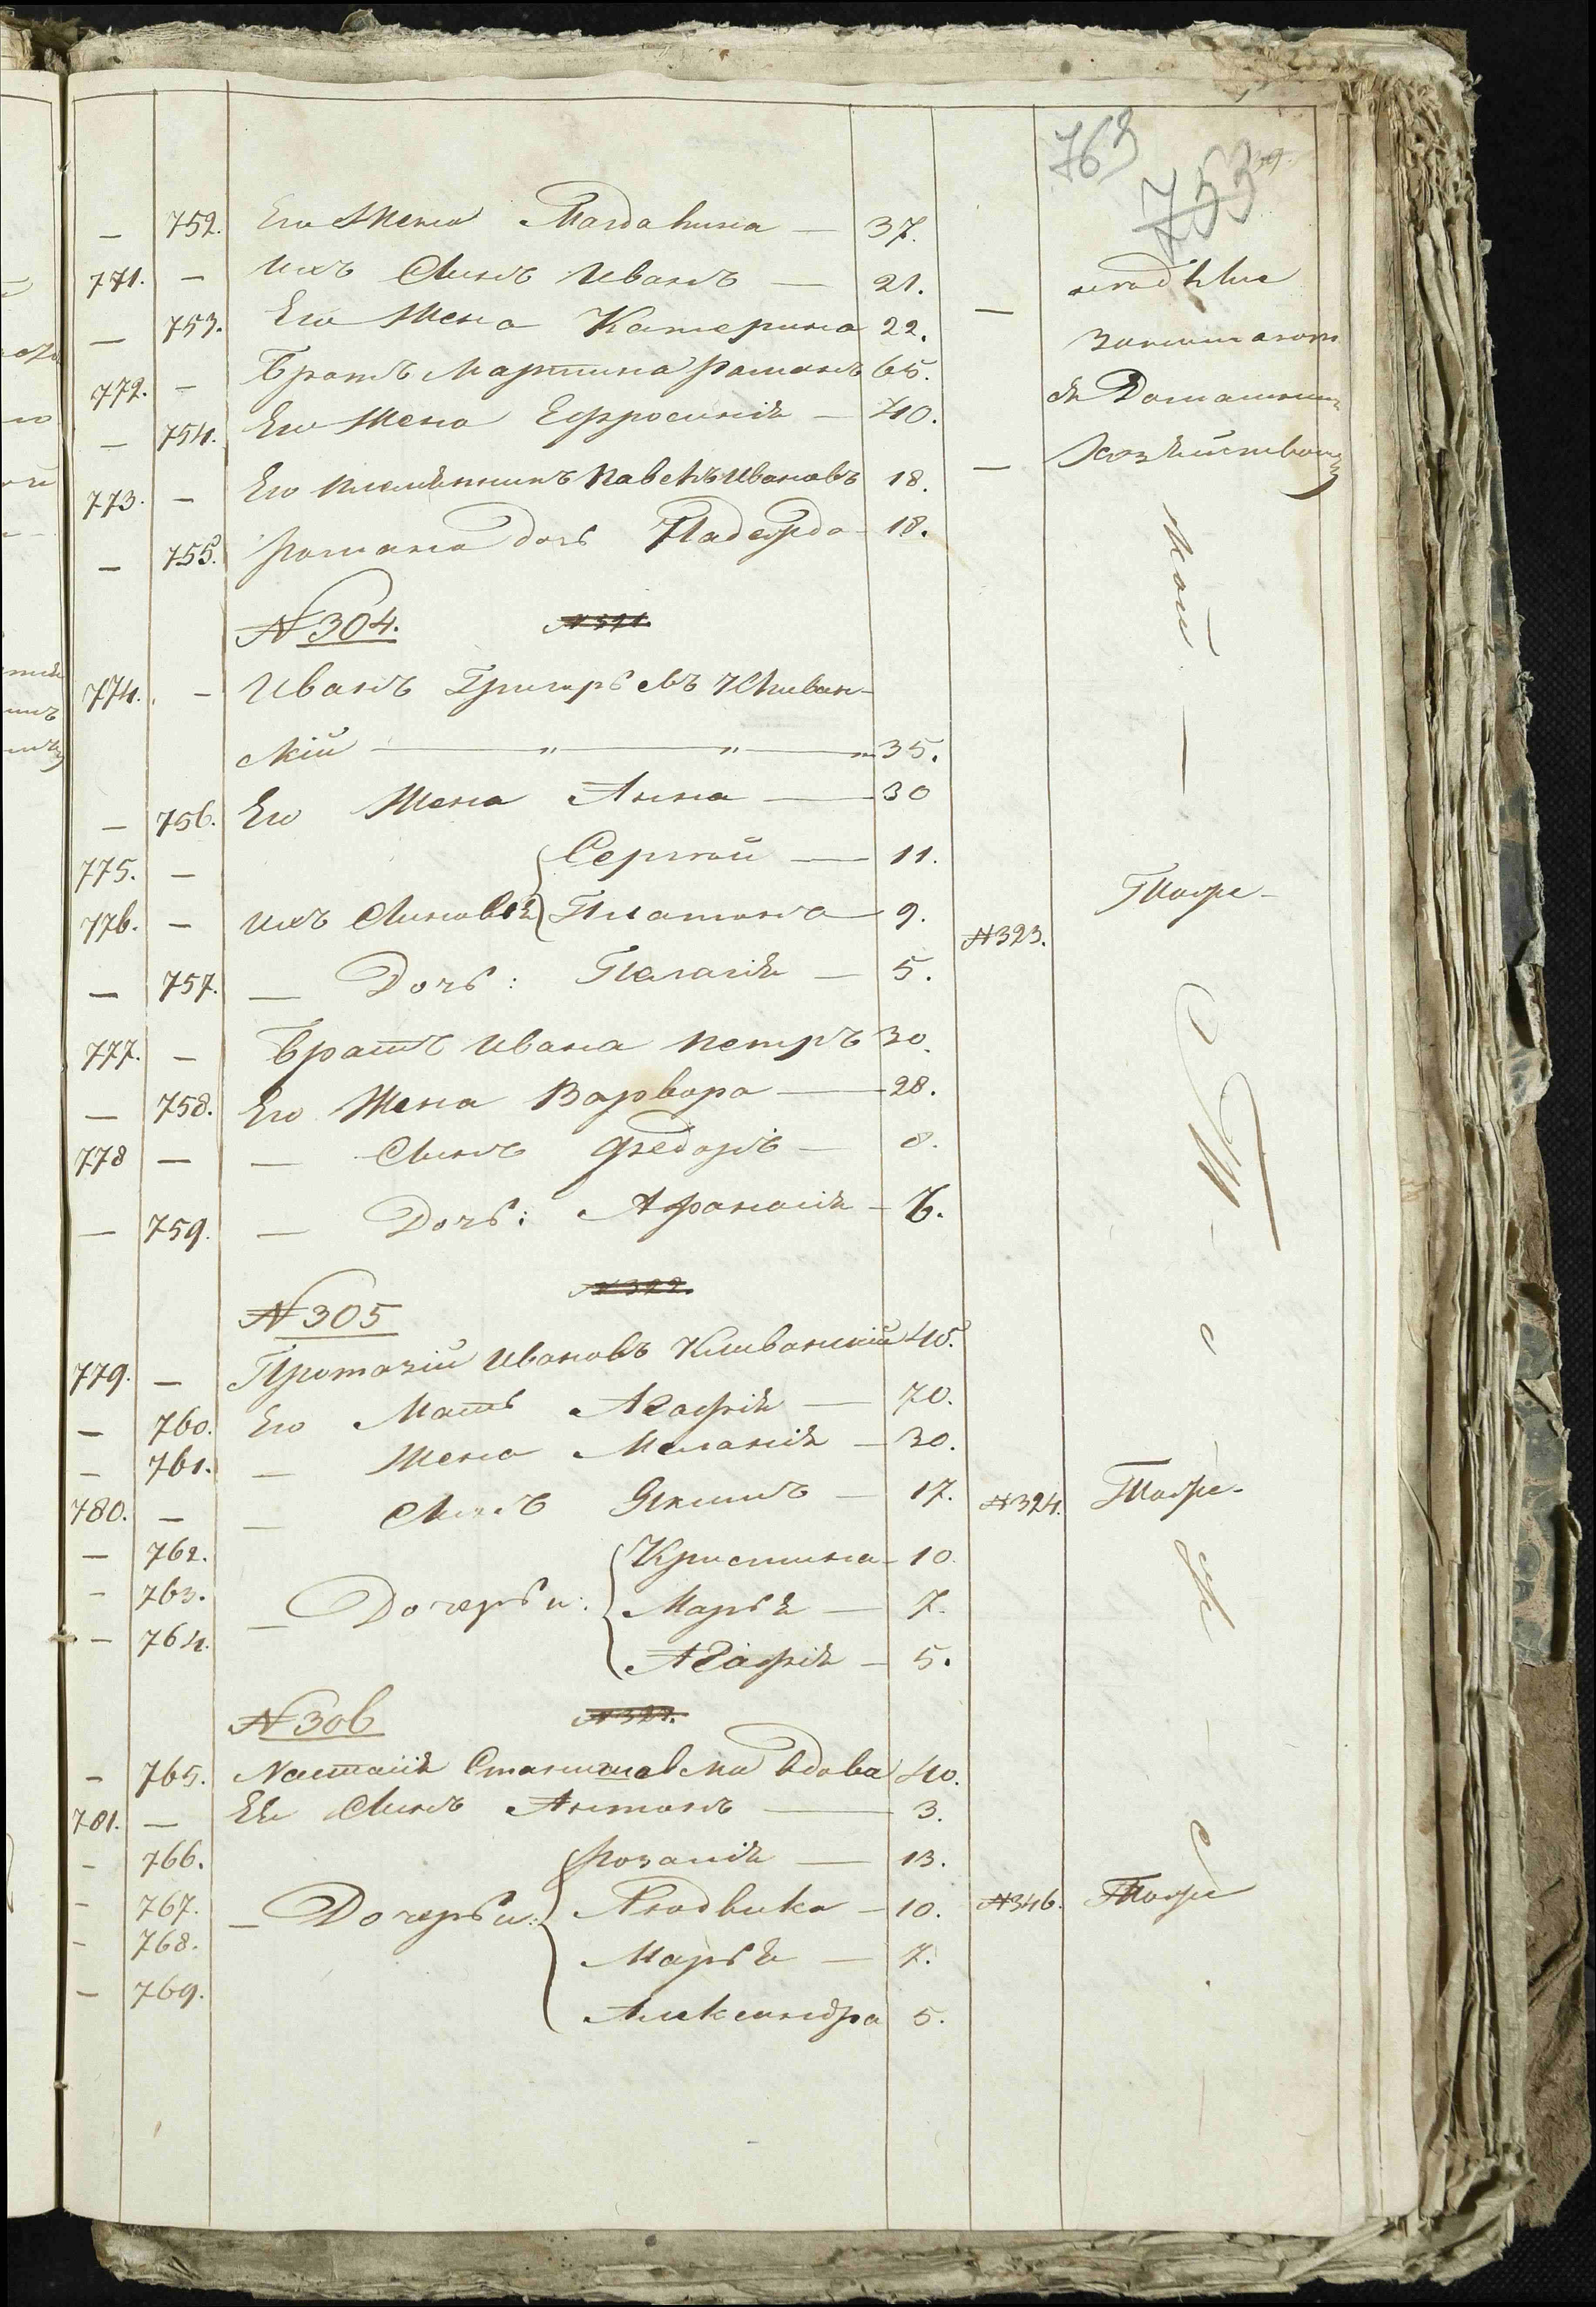 763
753
— 752. Его Жена Магдалина — 37.
771. — Ихъ Сынъ Иванъ — 21.
— 753. Его Жена Катерина 22. —
772. — Братъ Мартина Романъ 65.
— 754. Его Жена Ефросинія — 40.
773. — Его племянникъ Павелъ Ивановъ 18. —
— 755. Романа дочь Надежда — 18.
Домашнимъ
Хозяйствомъ
№ 304. № 321.
774. — Иванъ Григорьевъ Кливан-
скій — „ — „ — 35.
— 756. Его Жена Анна — 30
775. — Сергей — 11.
776. — Ихъ Сыновья Платона — 9. № 323. Тоже
— 757. — Дочь: Пелагія — 5.
777. — Братъ Ивана Петръ 30.
— 758. Его Жена Варвара — 28.
778 — — Сынъ Федоръ — 8.
— 759. — Дочь: Афанасія — 6.
№ 305 № 322.
779. — Протазій Ивановъ Кливанскій 45.
— 760. Его Мать Агафія — 70.
— 761. — Жена Меланія — 30.
780. — — Сынъ Якимъ — 17. № 324. Тоже
— 762. Кристина — 10.
— 763. — Дочерьи: Марья — 7.
— 764. Агафія — 5.
№ 306 № 323.
— 765. Настасія Станиславска вдова 40.
781. — Её Сынъ Антонъ — 3.
— 766. Розалія — 13.
— 767. — Дочерьи: Людвика — 10. № 346. Тоже
— 768. Марья — 7.
— 769. Александра 5.